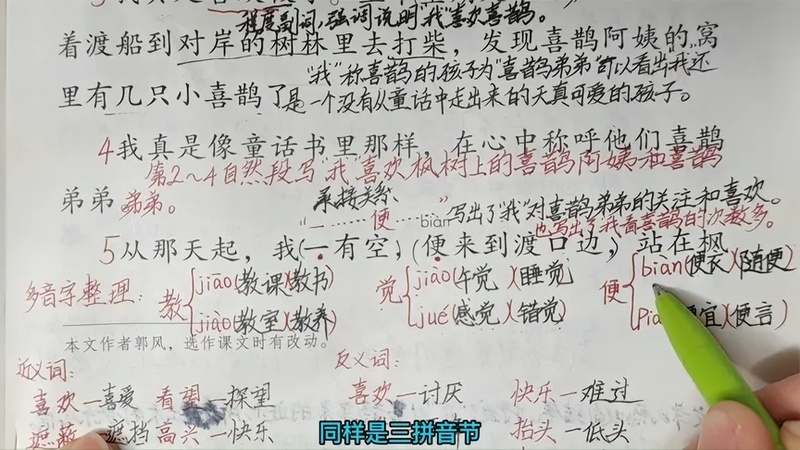 程度副词,强调说明"我"喜欢喜鹊。
着渡船到对岸的树林里去打柴,发现喜鹊阿姨的窝
"我"称喜鹊的孩子为"喜鹊弟弟"可以看出"我"还
里有几只小喜鹊了
是一个没有从童话中走出来的天真可爱的孩子。
4我真是像童话书里那样,在心中称呼他们喜鹊
第2~4自然段写"我"喜欢枫树上的喜鹊阿姨和喜鹊
弟弟
弟弟。
承接关系
"一……便……"
写出了"我"对喜鹊弟弟的关注和喜欢。
biàn
也写出了我看喜鹊的次数多。
5从那天起,我(一有空,(便来到渡口边,)站在枫
多音字整理:
教
jiāo(教课)(教书)
jiào(教室)(教养)
觉
jiào(午觉)(睡觉)
jué(感觉)(错觉)
便
biàn(便衣)(随便)
便宜)(便言)
本文作者郭风,选作课文时有改动。
近义词:
反义词:
喜欢—喜爱 看望—探望
—讨厌 快乐—难过
遮蔽—遮挡 高兴—快乐
抬头—低头
同样是三拼音节